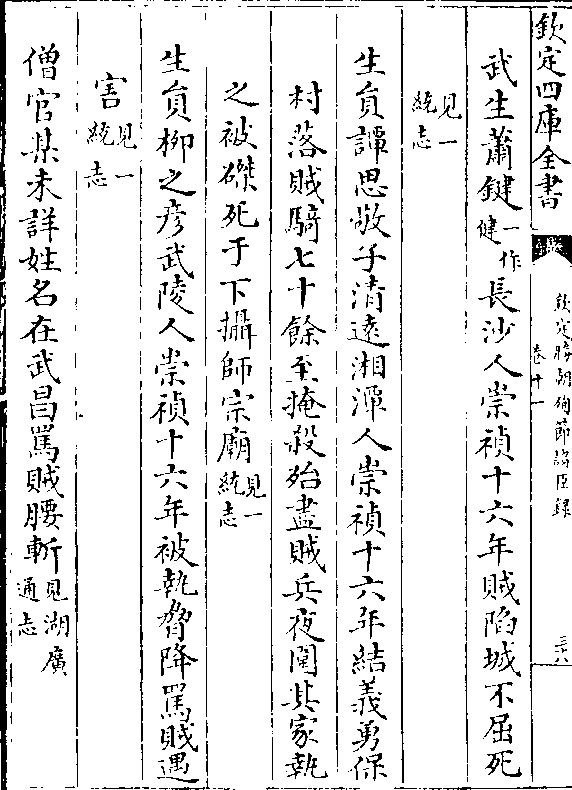 欽定四庫全書
欽定勝朝殉節諸臣録
卷十一
三六
武生蕭鍵一作健長沙人崇禎十六年賊陷城不屈死
見一統志
生員譚思敬子清遠湘潭人崇禎十六年結義勇保
村落賊騎七十餘至掩殺殆盡賊兵夜圍其家執
之被磔死于下攝師宗廟見一統志
生員柳之彦武陵人崇禎十六年被執脅降罵賊遇
害見一統志
僧官某未詳姓名在武昌罵賊腰斬見湖廣通志